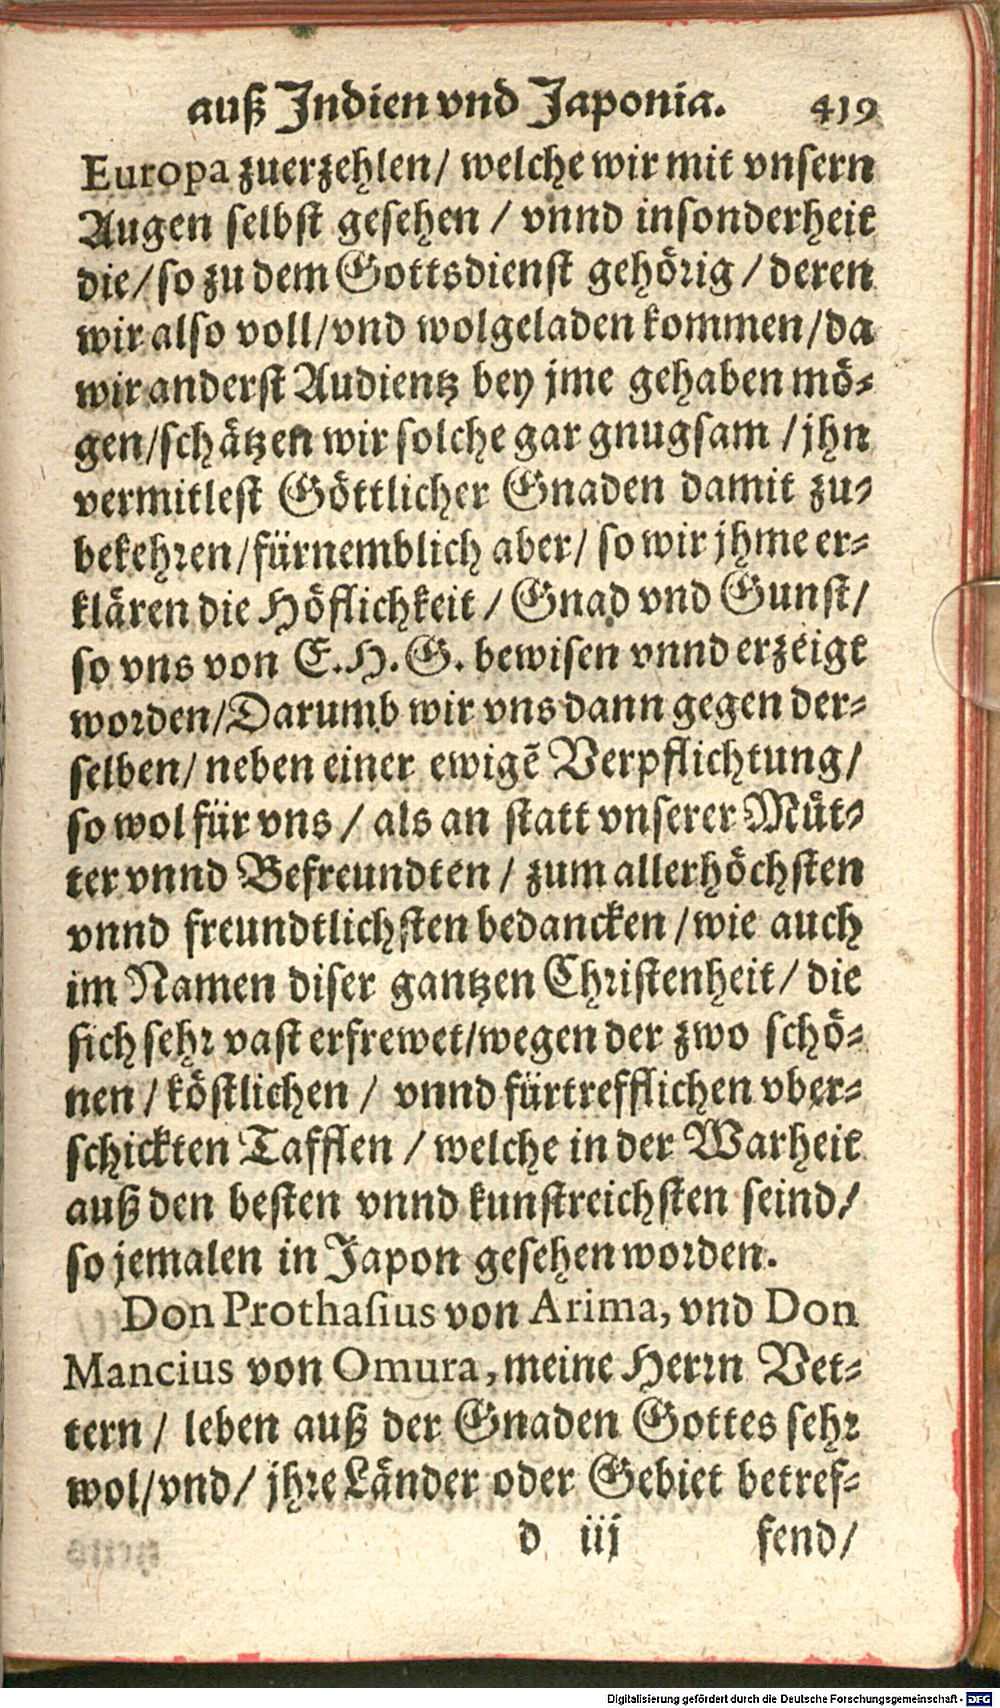 auß Indien vnd Japonia. 419
Europa zuerzehlen/ welche wir mit vnsern
Augen selbst gesehen / vnnd insonderheit
die/ so zu dem Gottsdienst gehörig / deren
wir also voll/ vnd wolgeladen kommen/ da
wir anderst Audientz bey jme gehaben mö-
gen/ schätzen wir solche gar gnugsam / jhn
vermitlest Göttlicher Gnaden damit zu-
bekehren/ fürnemblich aber/ so wir jhme er-
klären die Höflichkeit / Gnad vnd Gunst/
so vns von E. H. G. bewisen vnnd erzeigt
worden/ Darumb wir vns dann gegen der-
selben/ neben einer ewigẽ Verpflichtung/
so wol für vns / als an statt vnserer Müt-
ter vnnd Befreundten / zum allerhöchsten
vnnd freundtlichsten bedancken / wie auch
im Namen diser gantzen Christenheit/ die
sich sehr vast erfrewet/ wegen der zwo schö-
nen / köstlichen / vnnd fürtrefflichen vber-
schickten Tafflen / welche in der Warheit
auß den besten vnnd kunstreichsten seind/
so jemalen in Japon gesehen worden.
Don Prothasius von Arima, vnd Don
Mancius von Omura, meine Herrn Vet-
tern / leben auß der Gnaden Gottes sehr
wol/ vnd/ jhre Länder oder Gebiet betref-
d iij fend/
Digitalisierung gefördert durch die Deutsche Forschungsgemeinschaft - DFG